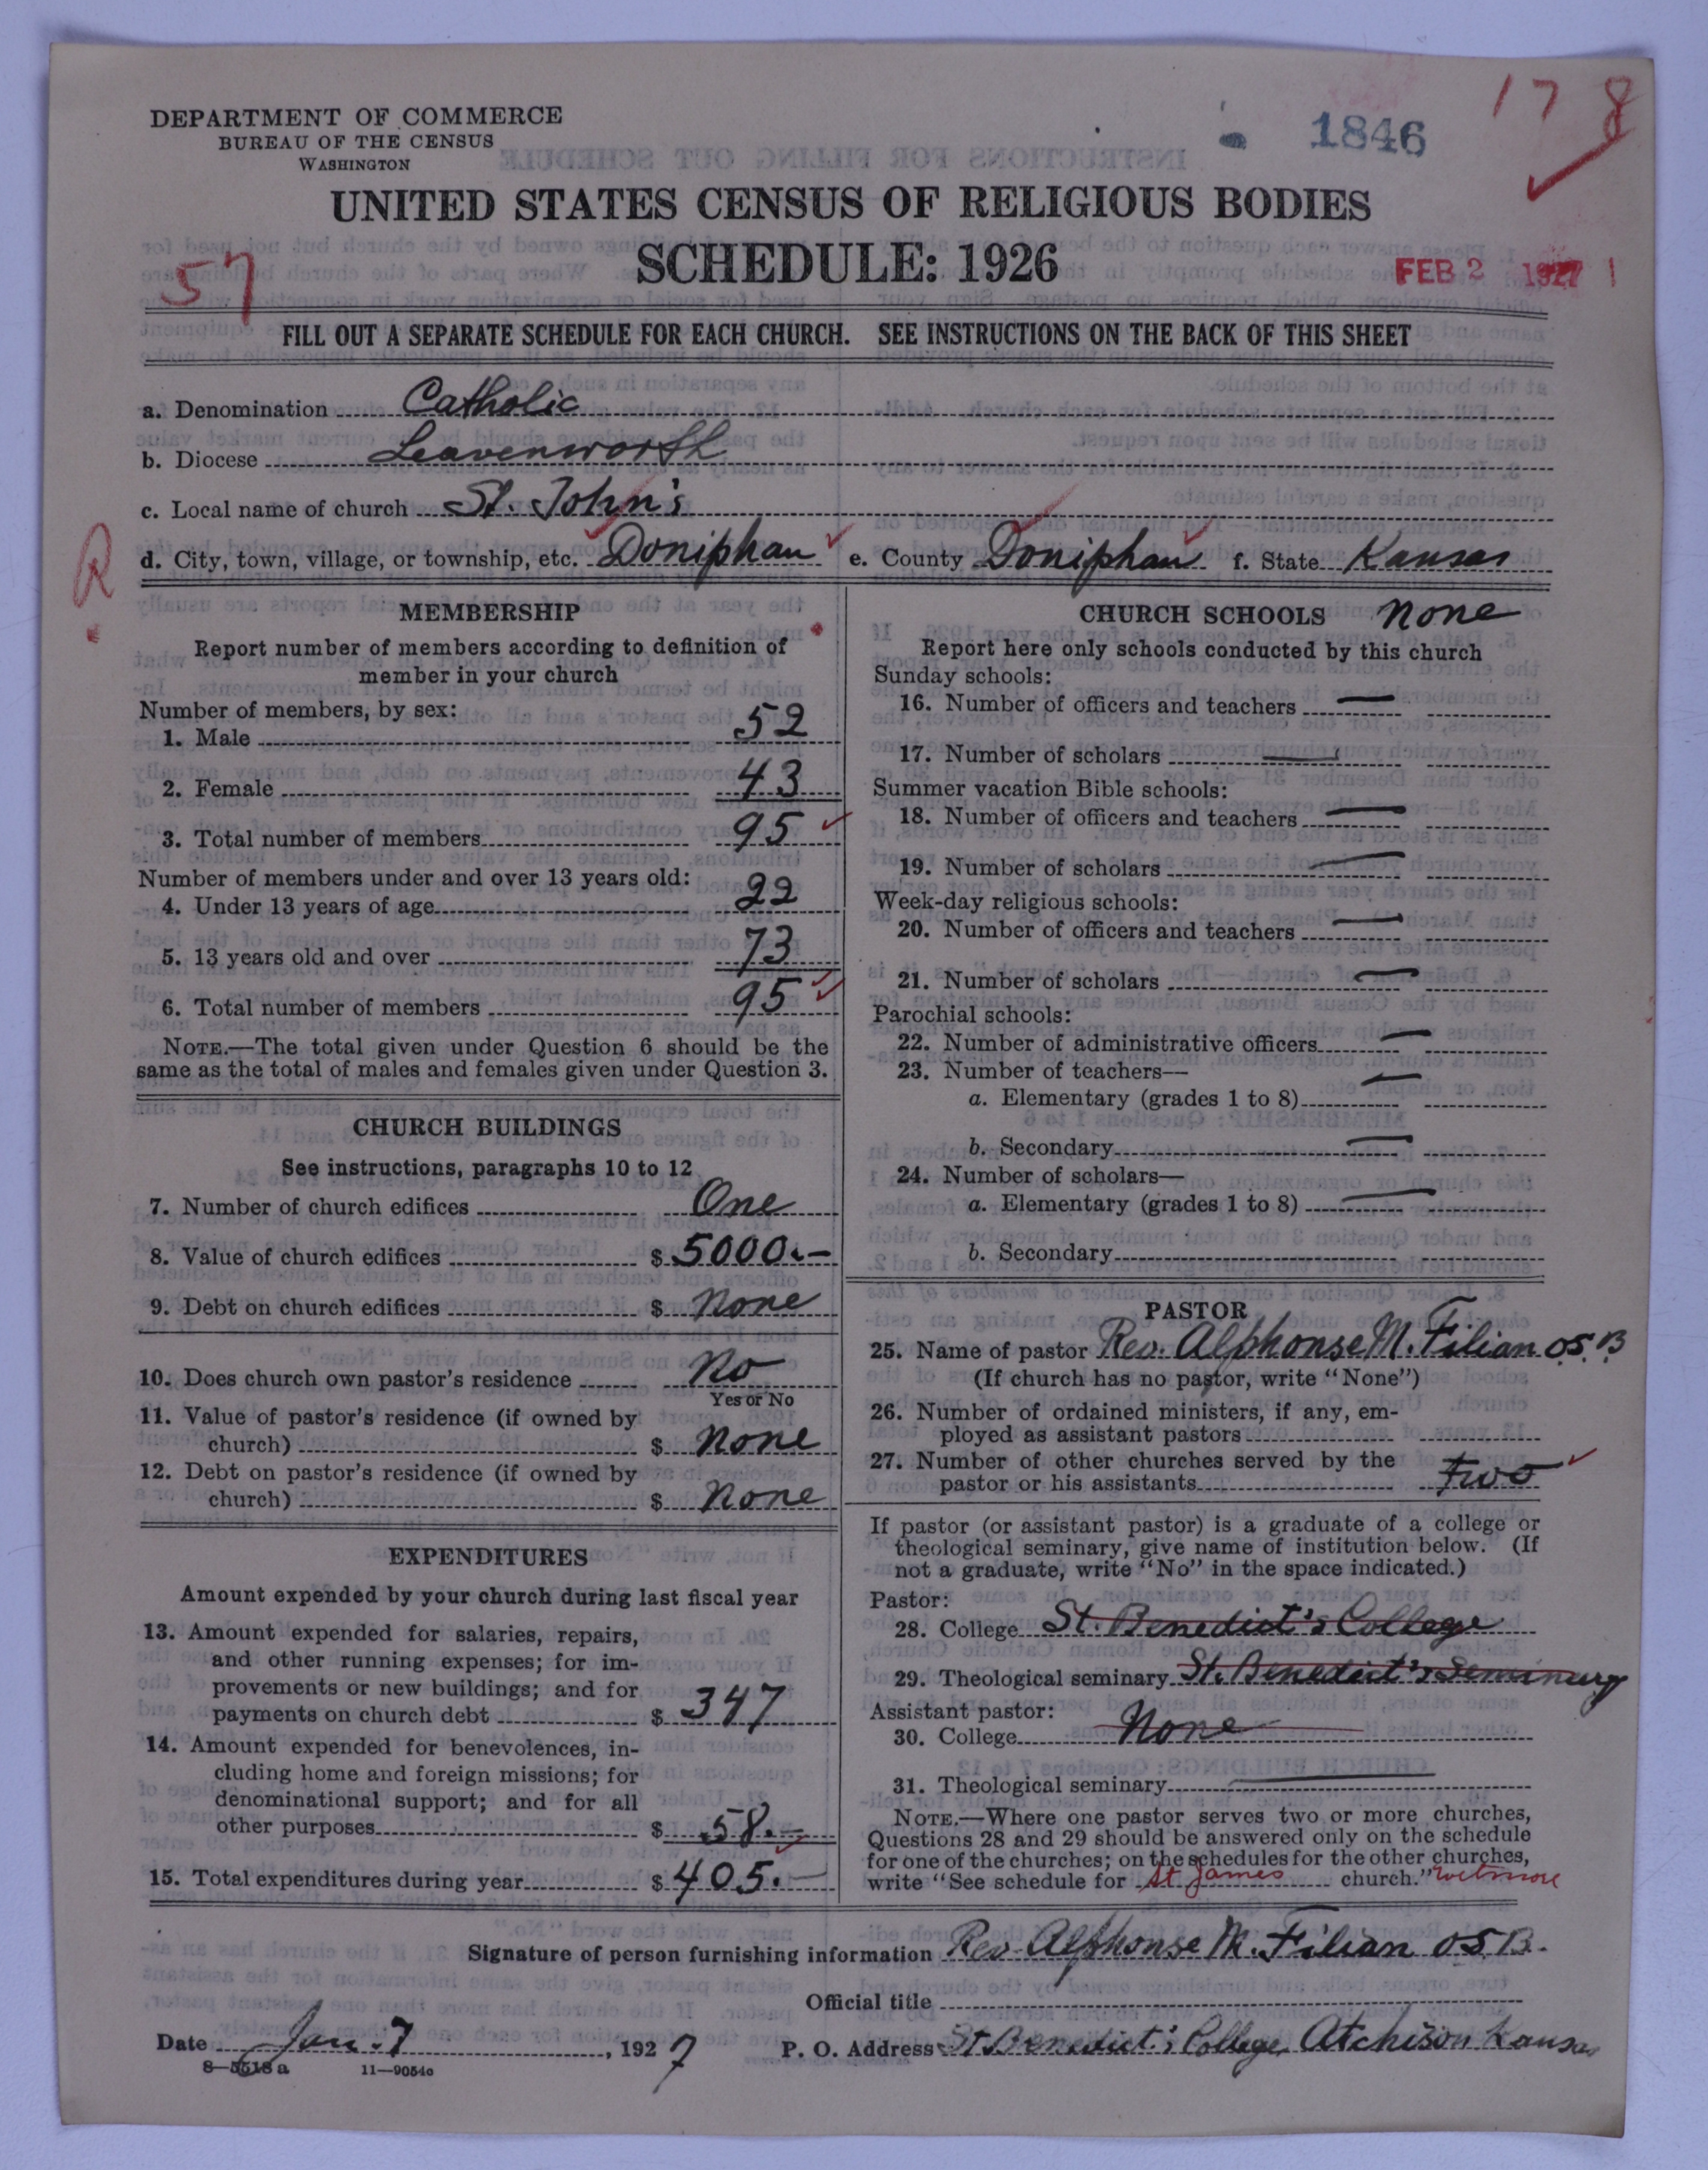 DEPARTMENT OF COMMERCE
BUREAU OF THE CENSUS
WASHINGTON
1846
178
UNITED STATES CENSUS OF RELIGIOUS BODIES
SCHEDULE: 1926
57
FEB 2 1927
FILL OUT A SEPARATE SCHEDULE FOR EACH CHURCH. SEE INSTRUCTIONS ON THE BACK OF THIS SHEET
a. Denomination Catholic
b. Diocese Leavenworth
c. Local name of church St. John's
d. City, town, village, or township, etc. Doniphan e. County Doniphan f. State Kansas
R
MEMBERSHIP
Report number of members according to definition of
member in your church
Number of members, by sex:
1. Male 52
2. Female 43
3. Total number of members 95
Number of members under and over 13 years old:
4. Under 13 years of age 22
5. 13 years old and over 73
6. Total number of members 95
NOTE.—The total given under Question 6 should be the
same as the total of males and females given under Question 3.
CHURCH BUILDINGS
See instructions, paragraphs 10 to 12
7. Number of church edifices One
8. Value of church edifices $ 5000.—
9. Debt on church edifices $ None
10. Does church own pastor's residence No
Yes or No
11. Value of pastor's residence (if owned by
church) $ None
12. Debt on pastor's residence (if owned by
church) $ None
EXPENDITURES
Amount expended by your church during last fiscal year
13. Amount expended for salaries, repairs,
and other running expenses; for im-
provements or new buildings; and for
payments on church debt $ 347
14. Amount expended for benevolences, in-
cluding home and foreign missions; for
denominational support; and for all
other purposes $ 58.—
15. Total expenditures during year $ 405.—
CHURCH SCHOOLS None
Report here only schools conducted by this church
Sunday schools:
16. Number of officers and teachers —
17. Number of scholars —
Summer vacation Bible schools:
18. Number of officers and teachers —
19. Number of scholars —
Week-day religious schools:
20. Number of officers and teachers —
21. Number of scholars —
Parochial schools:
22. Number of administrative officers —
23. Number of teachers— —
a. Elementary (grades 1 to 8)
b. Secondary —
24. Number of scholars—
a. Elementary (grades 1 to 8) —
b. Secondary
PASTOR
25. Name of pastor Rev. Alphonse M. Filian O.S.B.
(If church has no pastor, write "None")
26. Number of ordained ministers, if any, em-
ployed as assistant pastors
27. Number of other churches served by the
pastor or his assistants two
If pastor (or assistant pastor) is a graduate of a college or
theological seminary, give name of institution below. (If
not a graduate, write "No" in the space indicated.)
Pastor:
28. College St. Benedict's College
29. Theological seminary St. Benedict's Seminary
Assistant pastor:
30. College None
31. Theological seminary —
NOTE.—Where one pastor serves two or more churches,
Questions 28 and 29 should be answered only on the schedule
for one of the churches; on the schedules for the other churches,
write "See schedule for St James church." Wetmore
Signature of person furnishing information Rev Alphonse M. Filian OSB.
Official title
Date Jan. 7, 1927 P. O. Address St Benedict's College, Atchison Kansas
8—5518 a 11—9054o